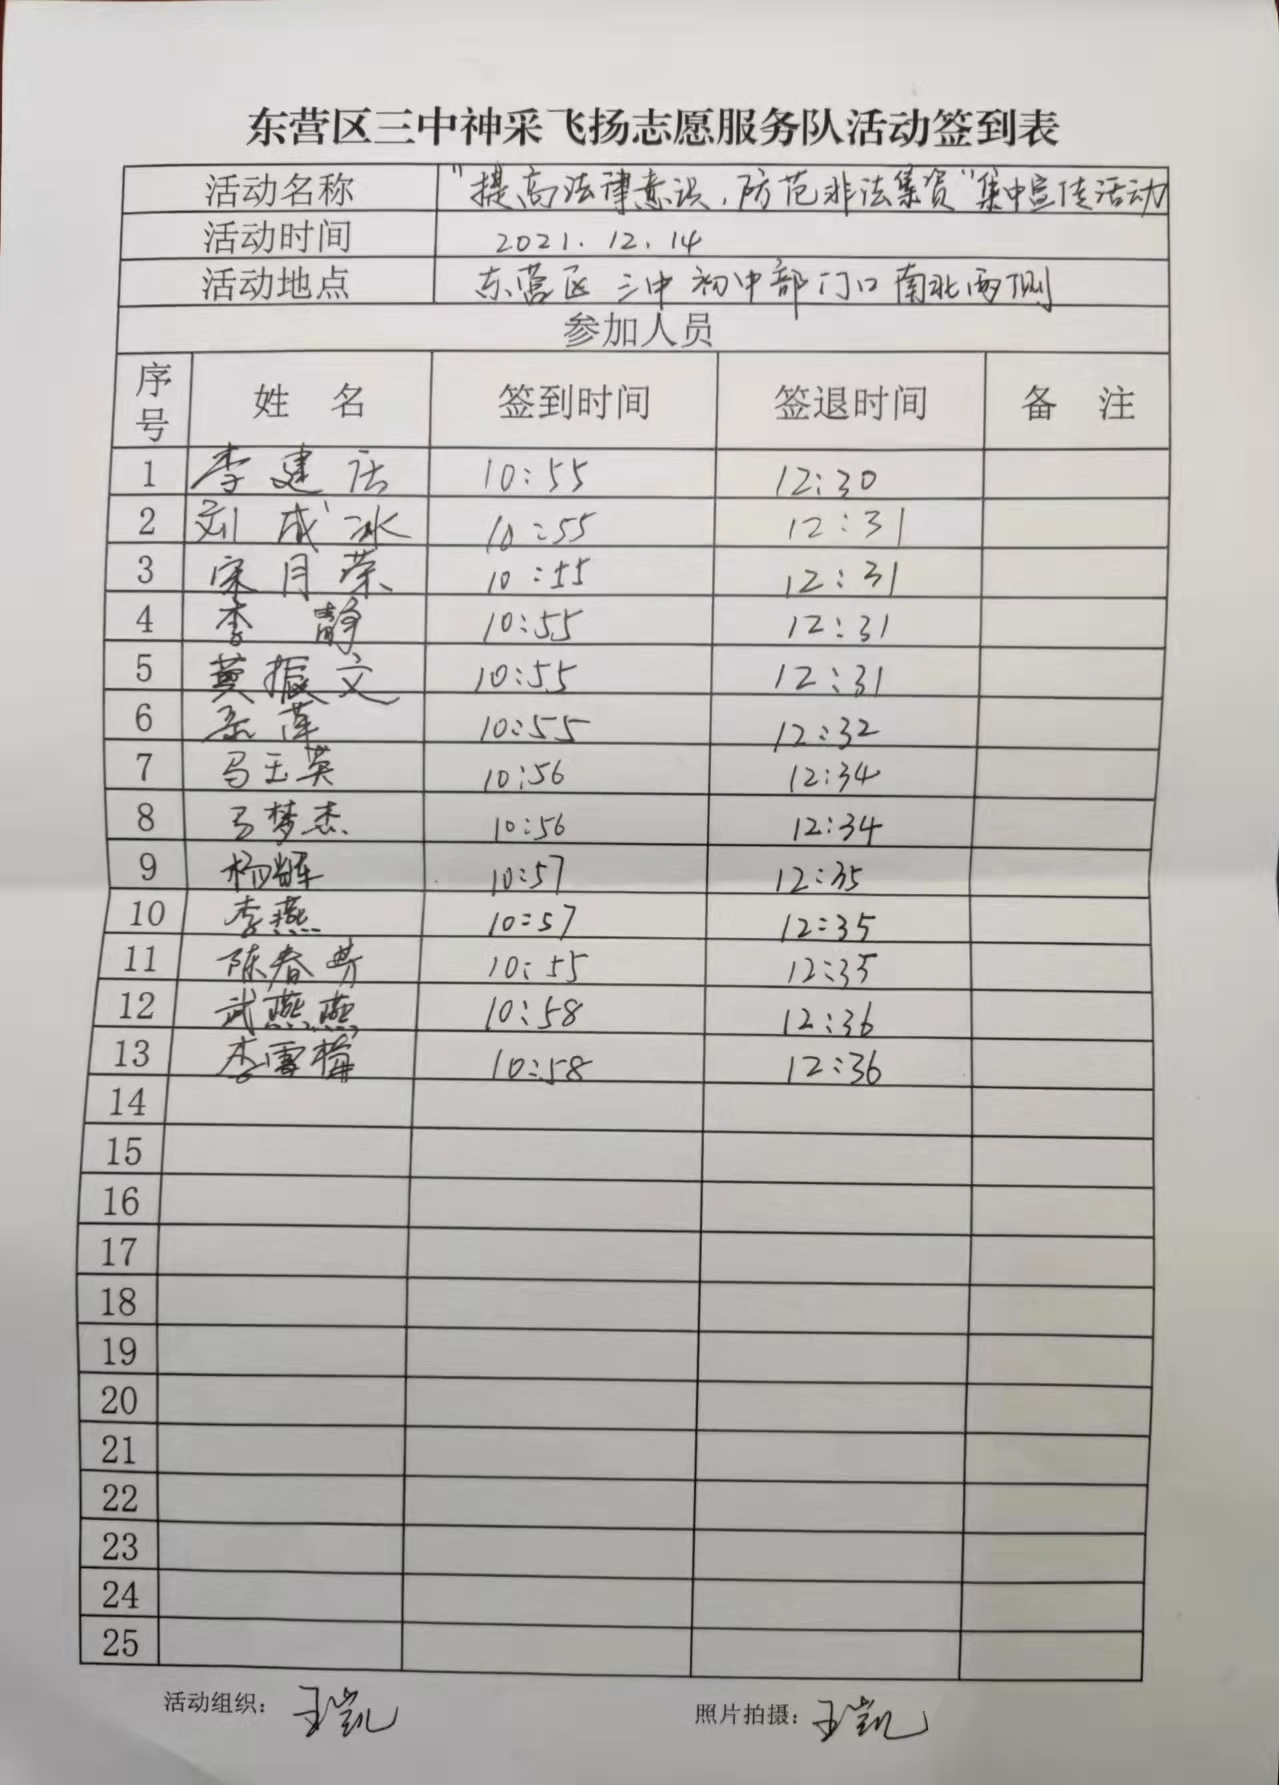 东营区三中神采飞扬志愿服务队活动签到表
活动名称 "提高法律意识，防范非法集资"集中宣传活动
活动时间 2021.12.14
活动地点 东营区三中初中部门口南北两侧
参加人员
序号 姓 名 签到时间 签退时间 备 注
1 李建 10:55 12:30
2 刘成冰 10:55 12:31
3 宋月荣 10:55 12:31
4 李 静 10:55 12:31
5 黄振文 10:55 12:31
6 莲 10:55 12:32
7 马玉英 10:56 12:34
8 马梦杰 10:56 12:34
9 杨辉 10:57 12:35
10 李燕 10:57 12:35
11 陈春 10:55 12:35
12 武燕燕 10:58 12:36
13 李雪梅 10:58 12:36
14
15
16
17
18
19
20
21
22
23
24
25
活动组织：王凯 照片拍摄：王凯